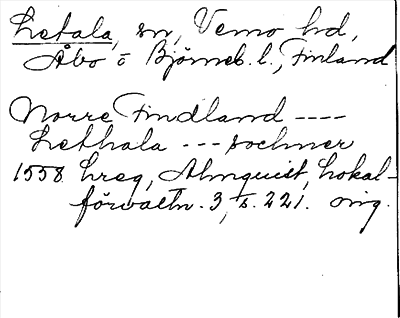 Letala, sn, Vemo hd,
Åbo o Björneb. l., Finland
Norre Findland ----
Lethala --- sochner
1558 hreg, Almquist, Lokal-
förvaltn. 3, s. 221. orig.